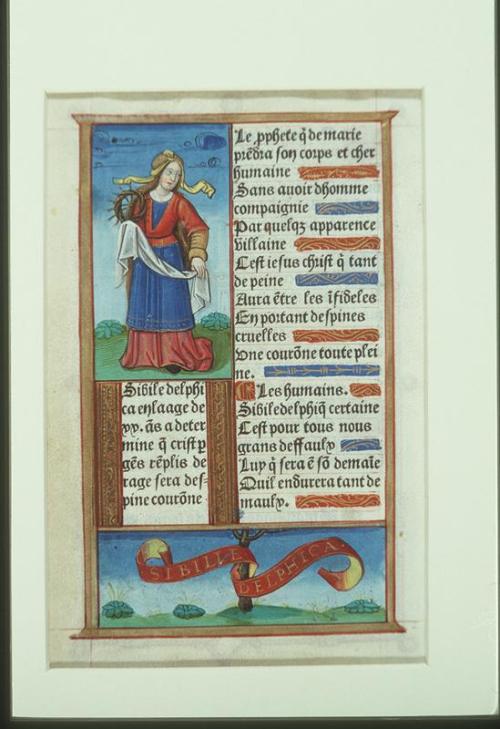 Le ꝓphete q̃ de marie
prẽdra son corps et cher
humaine
Sans auoir dhomme
compaignie
Par quelqꝫ apparence
villaine
Cest iesus christ q̃ tant
de peine
Aura ẽtre les ĩfideles
En portant despines
cruelles
Vne courõne toute plei
ne.
Les humains.
Sibile delphiq̃ certaine
Cest pour tous nous
grans deffaulx
Luy q̃ sera ẽ sõ demaĩe
Quil endurera tant de
maulx.
Sibile delphi
ca en laage de
xx. ãs a deter
mine q̃ crist ꝑ
gẽs rẽplis de
rage sera des-
pine courõne
SIBILLE DELPHICA